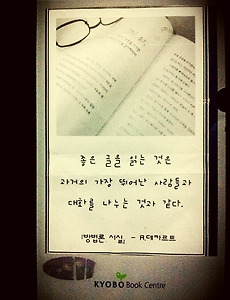 좋은 글을 읽는 것은
과거의 가장 뛰어난 사람들과
대화를 나누는 것과 같다.
[방법론 서설] - R.데카르트
KYOBO Book Centre